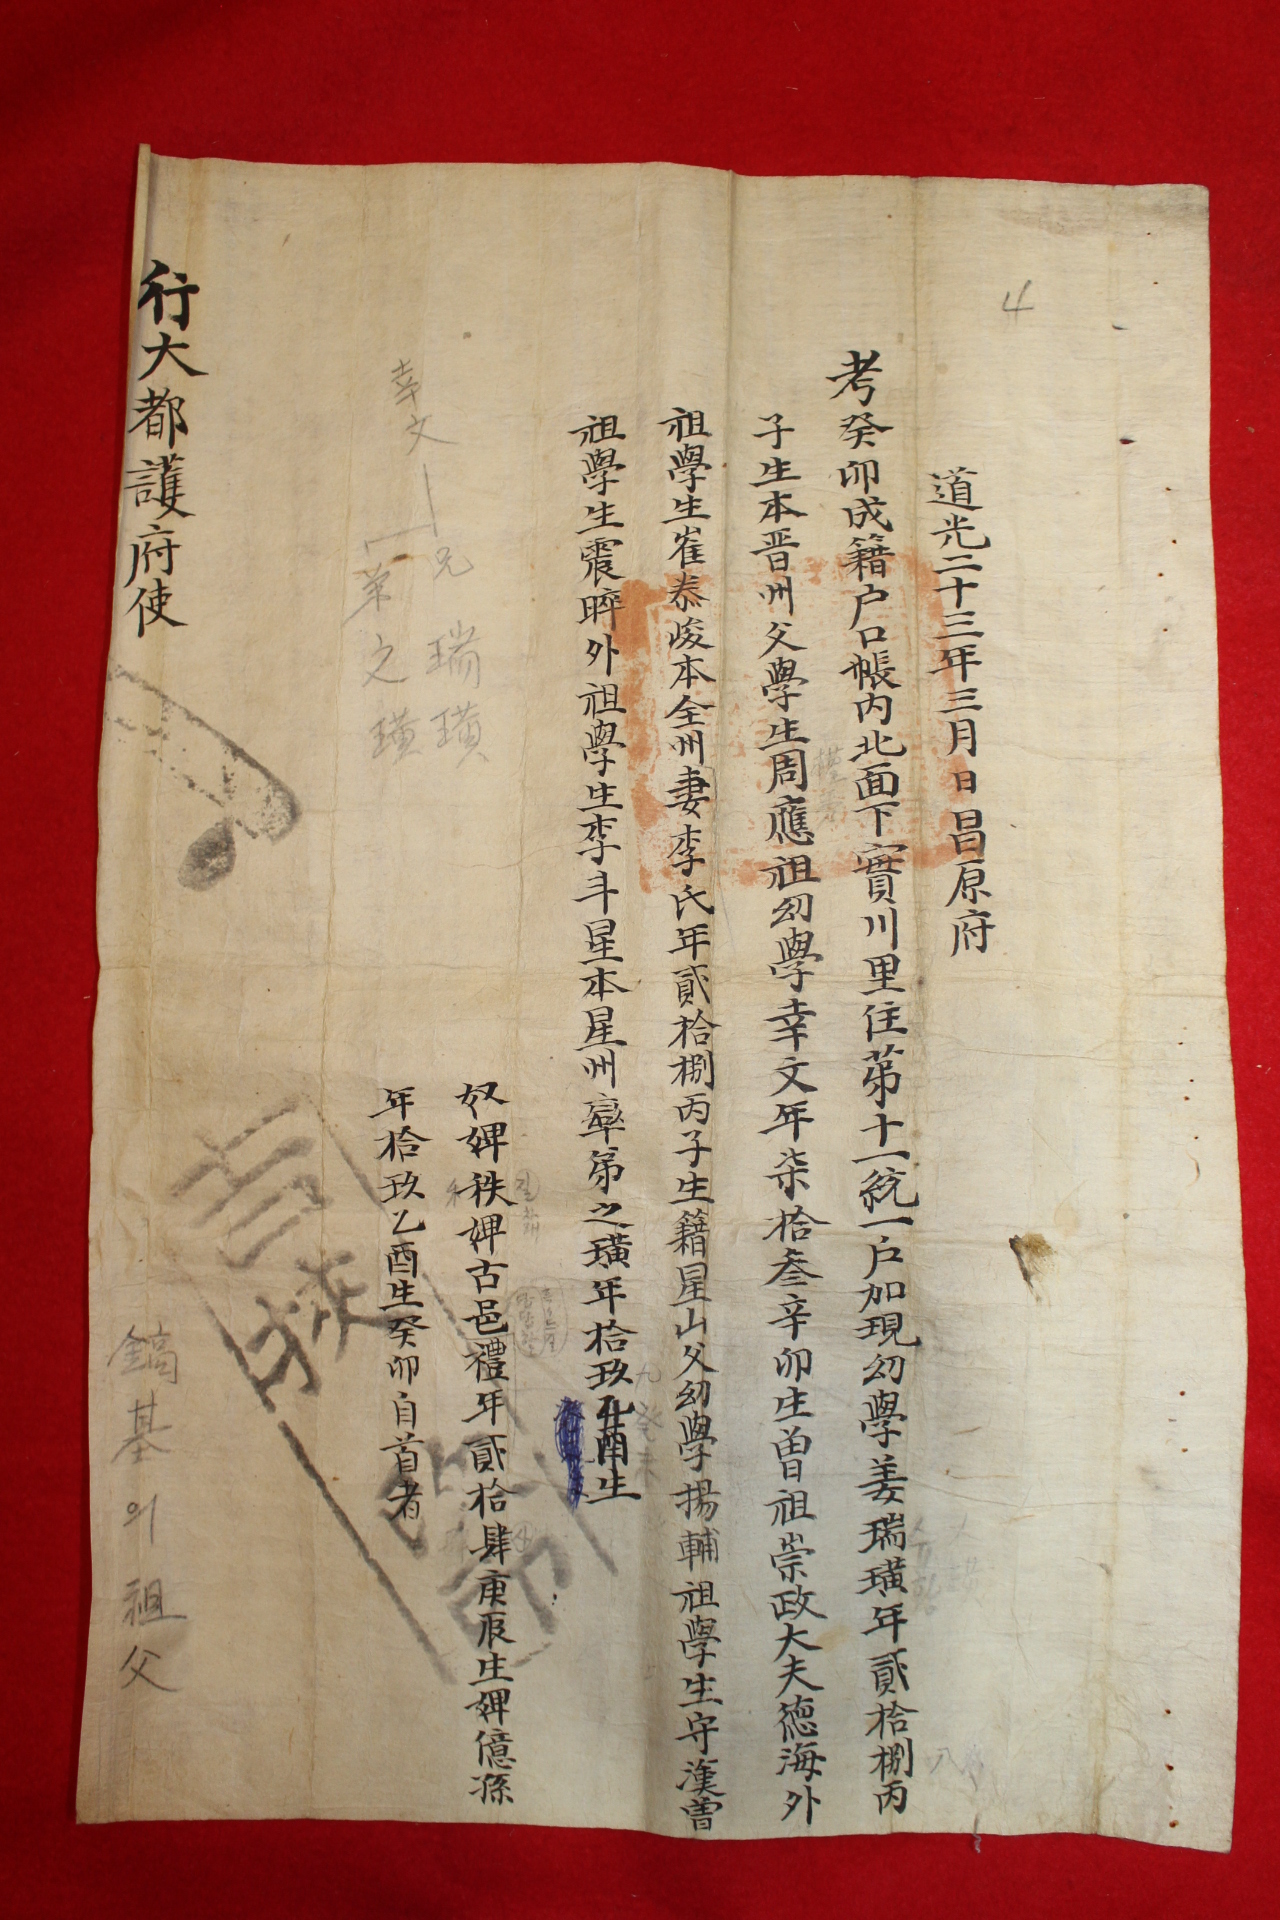 4
道光二十三年三月日昌原府
考癸卯成籍户口帳内北面下實川里住苐十一統一户加現幼學姜瑞璜年貳拾捌丙
子生本晋州父學生周應祖幼學幸文年柒拾叁辛卯生曽祖崇政大夫德海外
祖學生崔泰峻本全州妻李氏年貳拾捌丙子生籍星山父幼學揚輔祖學生守漢曽
祖學生震晬外祖學生李斗星本星州率弟之璜年拾玖乙酉生
九癸未
奴婢秩婢古邑禮年貳拾肆庚辰生婢億孫
年拾玖乙酉生癸卯自首者
幸文
兄瑞璜
弟之璜
行大都護府使
鎬基의祖父